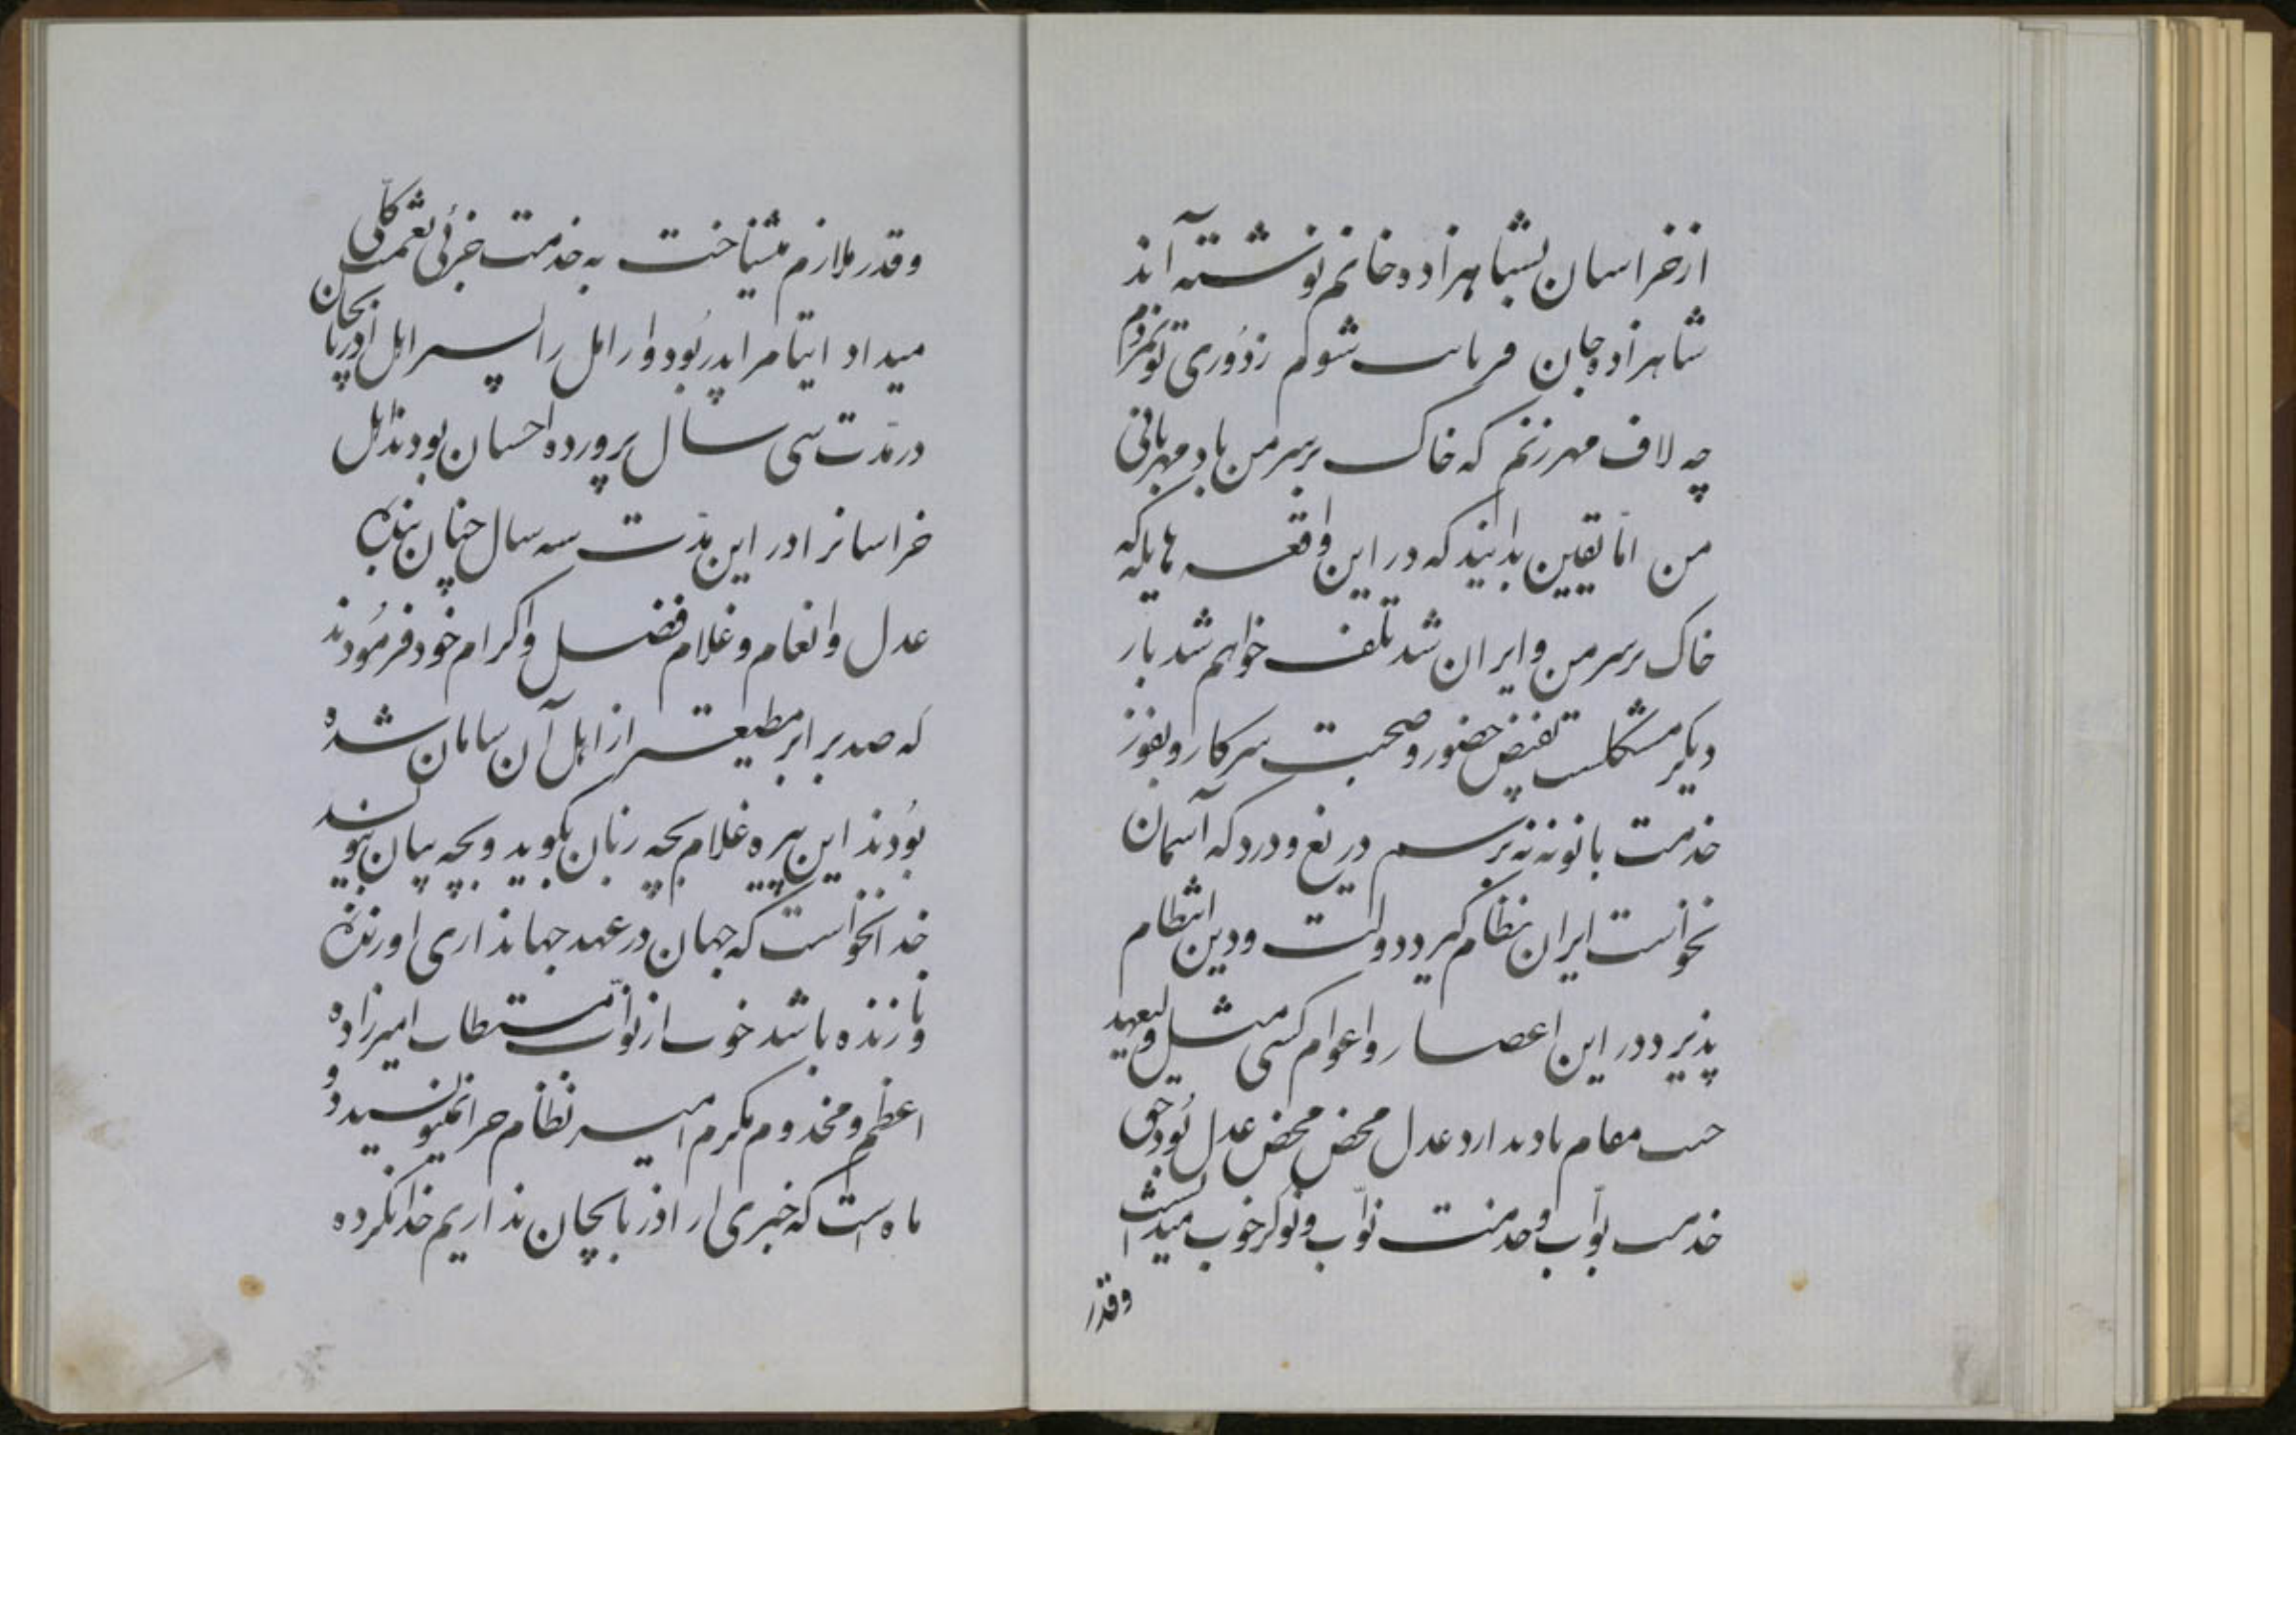 از خراسان بشاهزاده خانم نوشته آند
شاهزاده جان قربانت شوم ز دوری تو نمردم
چه لاف مهر زنم که خاک بر سر من باد و مهربانی
من اما یقین بدانید که در این واقعه هایله که
خاک بر سر من و ایران شد تلف خواهم شد بار
دیگر مشکلست بفیض حضور و صحبت سرکار و بفوز
خدمت بانو نه نه برسم دریغ و درد که آسمان
نخواست ایران نظام گیرد دولت و دین انتظام
پذیرد در این اعصار و اعوام کسی مثل ولیعهد
جنت مقام یاد ندارد عدل محض محض عدل بود حق
خدمت نواب و خدمت نواب و نوکر خوب میدانست
وقدر
و قدر ملازم میشناخت به خدمت جزئی نعمت کلّی
میداد ایتام را پدر بود و ارامل را پسر اهل آذربایجان
در مدّت سی سال پرورده احسان بودند اهل
خراسانرا در این مدّت سه سال چنان بنده
عدل و انعام و غلام فضل و اکرام خود فرمودند
که صد برابر مطیعتر از اهل آن سامان شده
بودند این پیره غلام بچه زبان بگوید و بچه بیان بنویسد
خدا نخواست که جهان در عهد جهانداری او زنده
و نازنده باشد خوب از نوّاب مستطاب امیرزاده
اعظم و مخدوم مکرم امیر نظام چرا نمینویسید دو
ماه است که خبری از اذربایجان نداریم خدا نکرده